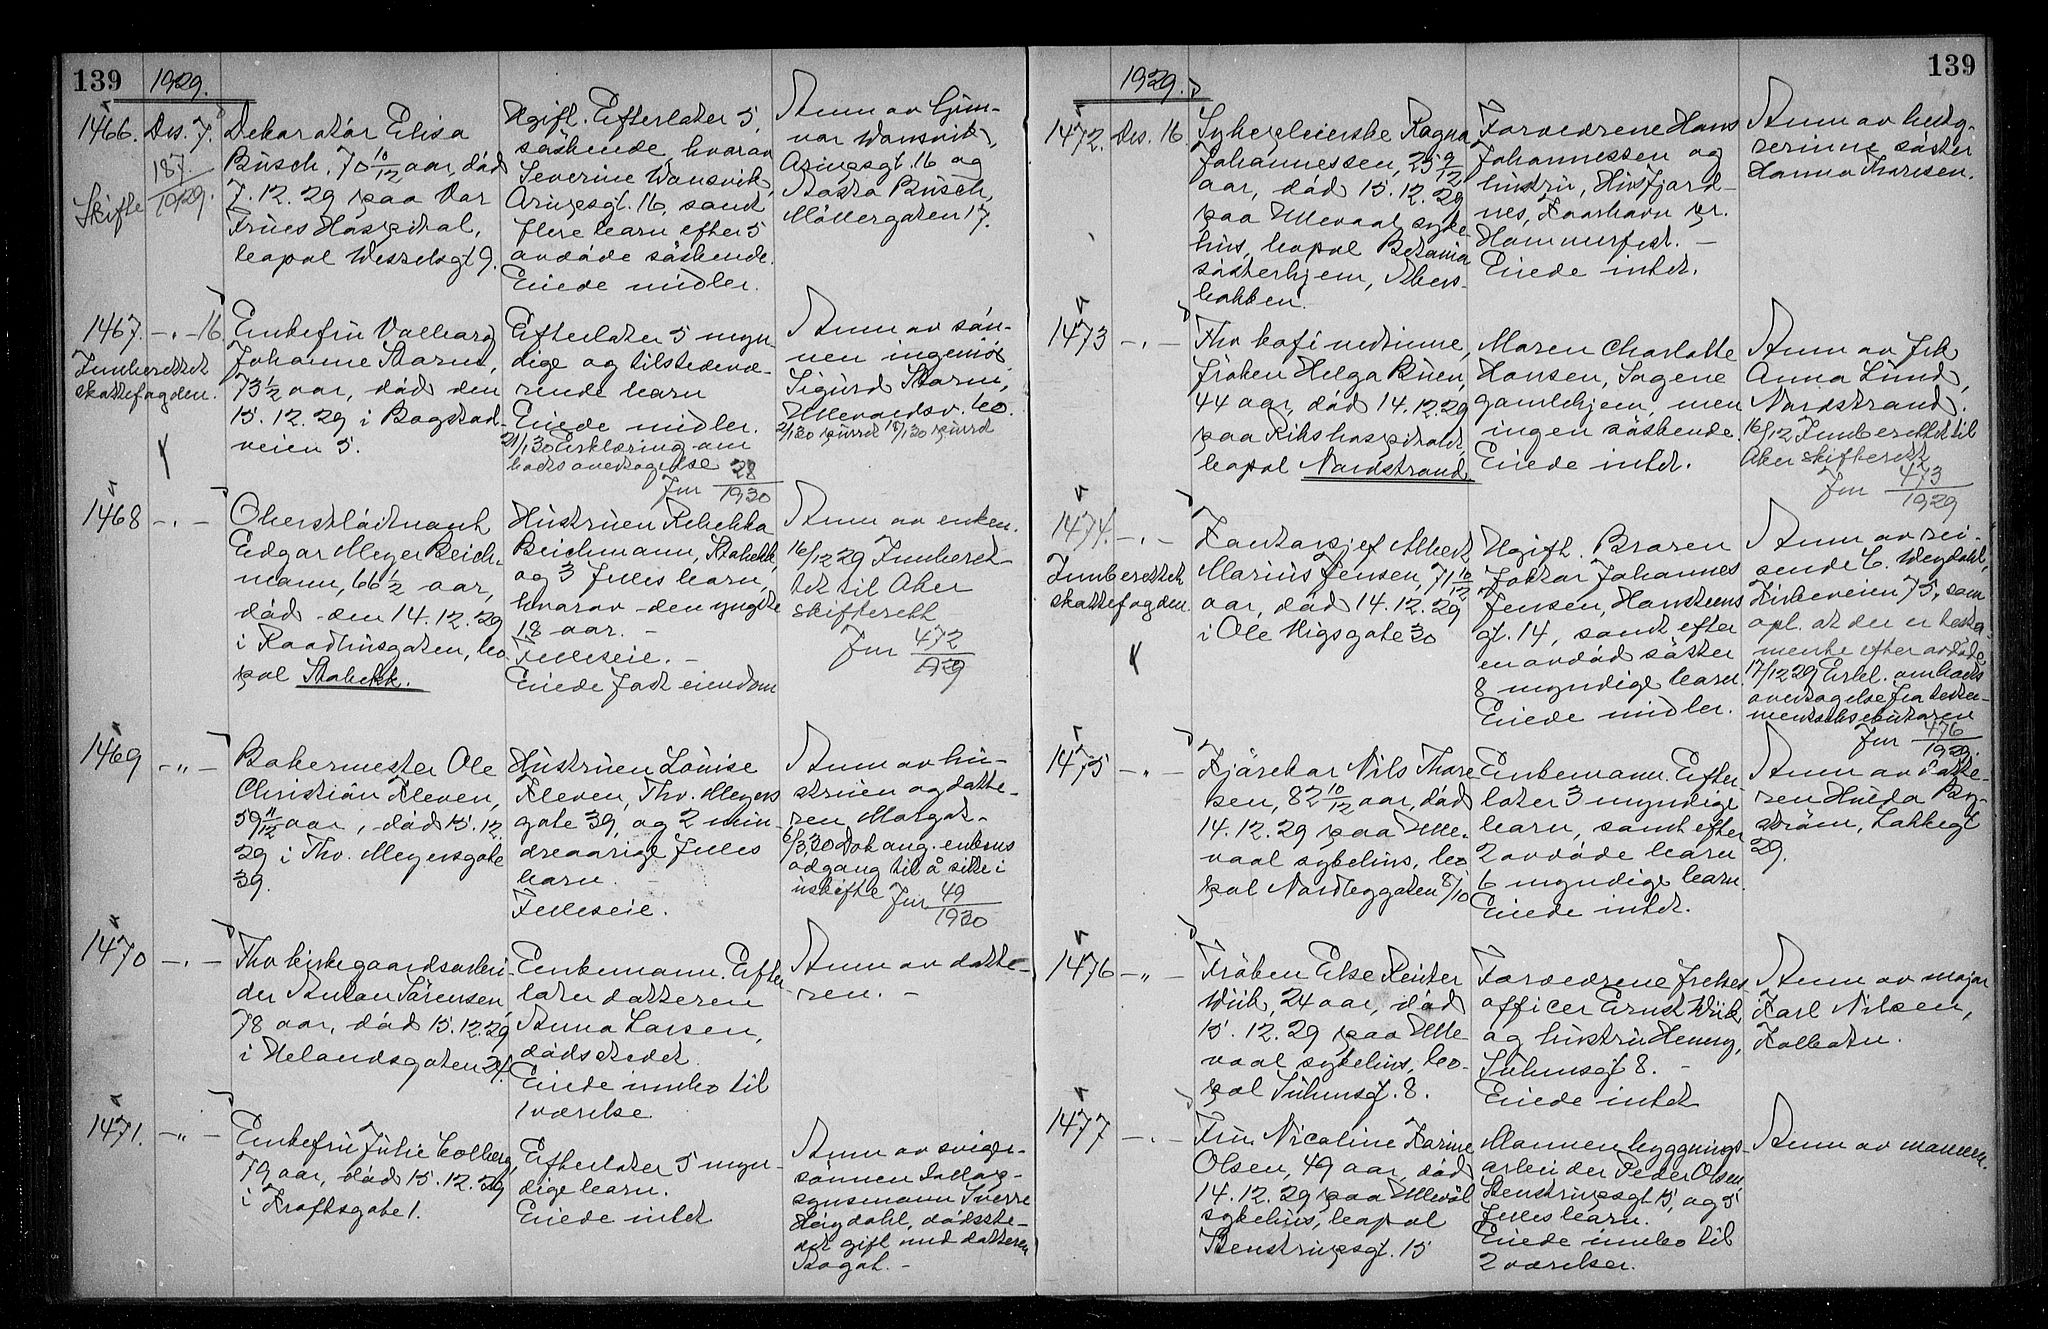 139
1929.
1466. Des. 7.
187/1929.
Skifte
Dekoratør Elisa
Busch, 70 10/12 aar, död
7.12.29 paa Vor
Frues Hospital,
bopal Wesselsgt 9.
Ugift. Efterlater 5
søskende hvorav
Severine Wansvik,
Arupsgt. 16, samt
flere barn efter 5
avdøde søskende.
Eiede midler.
Anm av Gun-
vor Wansvik,
Arupsgt. 16 og
Busch,
Møllergaten 17.
1467. -"- 16
Innberettet
skattefogden.
Enkefru Valborg
Johanne Storm,
73½ aar, död den
15.12.29 i Bogstad-
veien 5.
Efterlater 5 myn-
dige og tilstedevæ-
rende barn
Eiede midler.
21/1 30 Erklæring om
boets overtagelse
Jnr 28/1930
Anm av søn-
nen ingeniør
Sigurd Storm,
Ullevoldsv. 60.
2/1 30 purret 18/1 30 purret
1468 -"-
Oberstløitnant
Edgar Meyer Beich-
mann, 66½ aar,
död den 14.12.29
i Raadhusgaten, bo-
pal Stabekk.
Hustruen Rebekka
Beichmann, Stabekk,
og 3 felles barn,
hvorav den yngste
18 aar. -
Felleseie. -
Eiede fast eiendom
Anm av enken.
16/12 29 Innberet-
tet til Aker
skifterett
Jnr 472/1929
1469 -"-
Bakermester Ole
Christian Kleven,
59 11/12 aar, död 15.12.
29 i Thv. Meyersgate
39.
Hustruen Louise
Kleven, Thv. Meyers
gate 39, og 2 min-
dreaarige felles
barn. -
Felleseie.
Anm av hu-
struen og datte-
ren Margot.
6/3 30 Dok ang. enkens
adgang til å sitte i
uskifte Jnr 49/1930
1470 -"-
Fhv kirkegaardsarbei-
der Anton Sørensen,
78 aar, död 15.12.29
i Helandsgaten 24.
Enkemann. Efter-
later datteren
Anna Larsen,
dödsstedet.
Eiede innbo til
1 værelse
Anm av datte-
ren. -
1471. -"-
Enkefru Julie Colberg,
79 aar, död 15.12.29
i Kroftsgate 1.
Efterlater 5 myn-
dige barn.
Eiede intet
Anm av sviger-
sønnen
synsmann Sverre
Høigdahl, dödsste-
det gift med datteren
Ragot. -
139
1929.
1472. Des. 16
Sykepleierske Ragna
Johannessen, 25 9/12
aar, död 15.12.29
paa Ullevaal syke-
hus, bopal Betania
søsterhjem, Akers-
bakken.
Forældrene Hans
Johannessen og
hustru, Husfjord-
nes, Kaarhavn pr.
Hammerfest. -
Eiede intet.
Anm av
søster
Hanna Thorsen.
1473 -"-
Fhv kafévertinne,
frøken Helga Buen,
44 aar, död 14.12.29
paa Rikshospitalet,
bopal Nordstrand
Maren Charlotte
Hansen, Sagene
gamlehjem, men
ingen søskende.
Eiede intet.
Anm av frk
Anna Lund,
Nordstrand.
16/12 Innberettet til
Aker skifterett
Jnr 473/1929
1474. -"-
Innberettet
skattefogden
Kontorsjef Albert
Marius Jensen, 71 10/12
aar, död 14.12.29
i Ole Vigsgate 30
Ugift. Broren
doktor Johannes
Jensen, Hansteens
gt. 14, samt efter
en avdød søster
8 myndige barn.
Eiede midler.
Anm av rei-
sende C. Weydahl,
Kirkeveien 75, som
opl. at der er testa-
mente efter avdøde
17/12 29 Erkl. om boets
overtagelse fra testa-
mentseksekutoren
Jnr 476/1929.
1475 -"-
Kjørekar Nils Thore-
sen, 82 10/12 aar, död
14.12.29 paa Ulle-
vaal sykehus, bo-
pal Nordbyggaten 8/10
Enkemann. Efter-
later 3 myndige
barn, samt efter
2 avdøde barn
6 myndige barn.
Eiede intet.
Anm av datte-
ren Hulda By-
strøm, Lakkegt
29.
1476 -"-
Frøken Else Reuter
Wiik, 24 aar, död
15.12.29 paa Ulle-
vaal sykehus, bo-
pal Suhmsgt. 8.
Forældrene frelses-
officer Ernst Wiik
og hustru Henny,
Suhmsgt 8. -
Eiede intet
Anm av major
Karl Nilsen,
Kolbotn.
1477 -"-
Fru Nicoline Karine
Olsen, 49 aar, död
14.12.29 paa Ullevål
sykehus, bopal
Stenstrupsgt. 15
Mannen bygnings-
arbeider Peder Olsen
Stenstrupsgt 15, og 5
felles barn.
Eiede innbo til
2 værelser.
Anm av mannen.